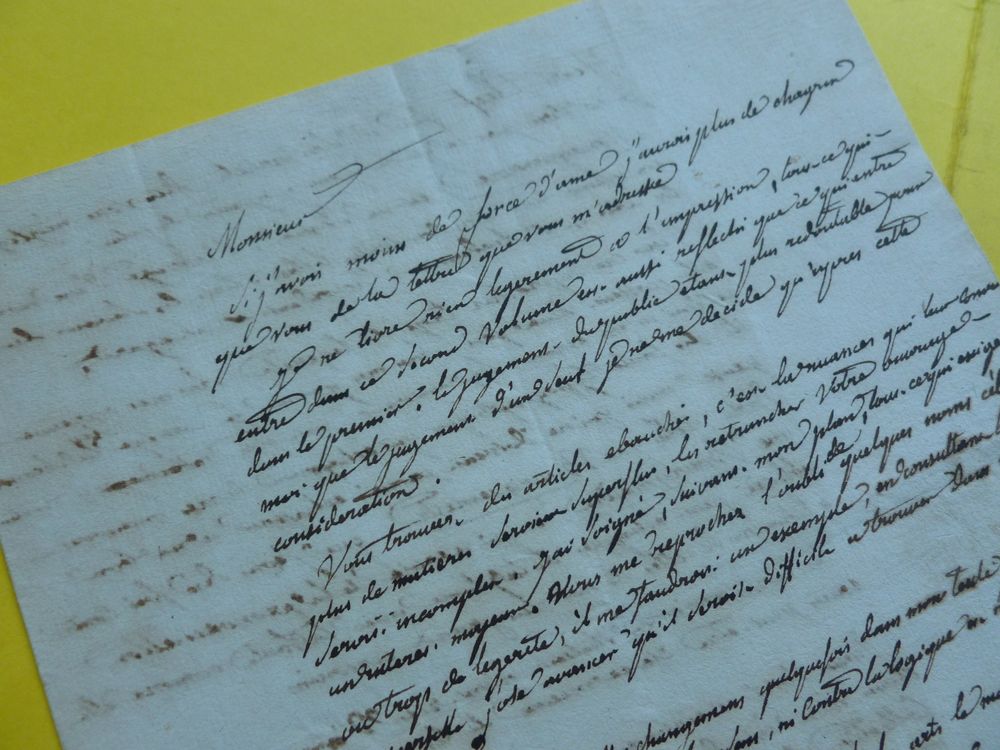 Monsieur
Si j'avois moins de force d'ame j'aurois plus de chagrin
que vous de la lettre que vous m'adressée
je ne livre rien legerement a l'impression, tout ce qui
entre dans ce second volume est aussi reflechi que ce qui entre
dans le premier. le jugement du public etant plus redoutable pour
moi que le jugement d'un seul je ne me decide qu'apres cette
consideration.
Vous trouvez des articles ebauchés, c'est la nuances qui leur
plus de matieres seroient superflus, les retrancher Votre ouvrage
seroit incomplet. j'ai soigné, suivant mon plan, tout ce qui exige
un interet majeur. Vous me reprochez l'oubli de quelques noms
ou trop de legereté, il me faudroit un exemple, en consultant
J'ose avancer qu'il seroit difficile a trouver dans
changemens quelquefois dans mon texte
ni contre la logique
arts